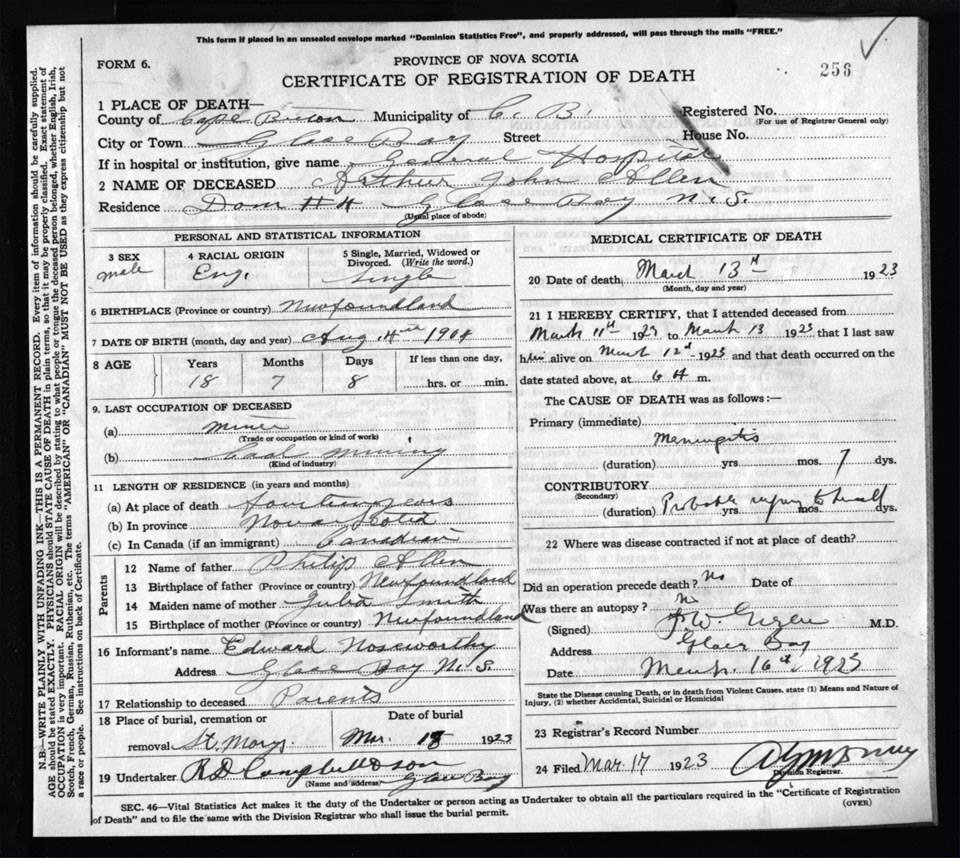 This form if placed in an unsealed envelope marked "Dominion Statistics Free", and properly addressed, will pass through the mails "FREE."
FORM 6.
PROVINCE OF NOVA SCOTIA
CERTIFICATE OF REGISTRATION OF DEATH
256
1 PLACE OF DEATH—
County of Cape Breton Municipality of C. B. Registered No.
(For use of Registrar General only)
City or Town Glace Bay Street House No.
If in hospital or institution, give name General Hospital
2 NAME OF DECEASED Arthur John Allen
Residence Dom #4 Glace Bay N.S.
(Usual place of abode)
PERSONAL AND STATISTICAL INFORMATION
3 SEX male
4 RACIAL ORIGIN Eng.
5 Single, Married, Widowed or Divorced. (Write the word.) Single
6 BIRTHPLACE (Province or country) Newfoundland
7 DATE OF BIRTH (month, day and year) Aug 4th 1904
8 AGE Years Months Days If less than one day,
18 7 8 hrs. or min.
9. LAST OCCUPATION OF DECEASED
(a) miner
(Trade or occupation or kind of work)
(b) Coal Mining
(Kind of industry)
11 LENGTH OF RESIDENCE (in years and months)
(a) At place of death fourteen years
(b) In province Nova Scotia
(c) In Canada (if an immigrant) Canadian
Parents
12 Name of father Philip Allen
13 Birthplace of father (Province or country) Newfoundland
14 Maiden name of mother Julia Smith
15 Birthplace of mother (Province or country) Newfoundland
16 Informant's name Edward Noseworthy
Address Glace Bay N. S
17 Relationship to deceased Parents
18 Place of burial, cremation or Date of burial
removal St. Marys Mar. 18 1923
19 Undertaker R D Campbell & son
(Name and address) Glace Bay
MEDICAL CERTIFICATE OF DEATH
20 Date of death March 13th 1923
(Month, day and year)
21 I HEREBY CERTIFY, that I attended deceased from
March 11th 1923 to March 13 1923 that I last saw
him alive on March 12th 1923 and that death occurred on the
date stated above, at 6 m.
The CAUSE OF DEATH was as follows:—
Primary (immediate)
Meningitis
(duration) yrs. mos. 7 dys.
CONTRIBUTORY
(Secondary)
Probable injury to
(duration) yrs. mos. dys.
22 Where was disease contracted if not at place of death?
Did an operation precede death? No Date of
Was there an autopsy? N
(Signed) M.D.
Address Glace Bay
Date March 16th 1923
State the Disease causing Death, or in death from Violent Causes, state (1) Means and Nature of
Injury, (2) whether Accidental, Suicidal or Homicidal
23 Registrar's Record Number
24 Filed Mar 17 1923
Division Registrar.
SEC. 46—Vital Statistics Act makes it the duty of the Undertaker or person acting as Undertaker to obtain all the particulars required in the "Certificate of Registration
of Death" and to file the same with the Division Registrar who shall issue the burial permit.
(OVER)
N.B.—WRITE PLAINLY WITH UNFADING INK—THIS IS A PERMANENT RECORD. Every item of information should be carefully supplied.
AGE should be stated EXACTLY. PHYSICIANS should STATE CAUSE OF DEATH in plain terms, so that it may be properly classified. Exact statement of
OCCUPATION is very important. RACIAL ORIGIN will be described by stating to what people or tongue the deceased person belonged, whether English, Irish,
Scotch, French, German, Russian, Ruthenian, etc. The terms "AMERICAN" OR "CANADIAN" MUST NOT BE USED as they express citizenship but not
a race or people. See instructions on back of Certificate.